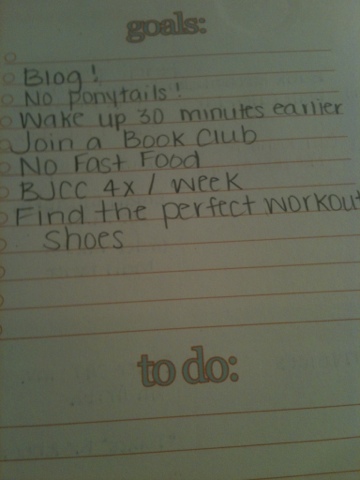 goals:
Blog!
No ponytails!
Wake up 30 minutes earlier
Join a Book Club
No Fast Food
BJCC 4x / week
Find the perfect workout
Shoes
to do: